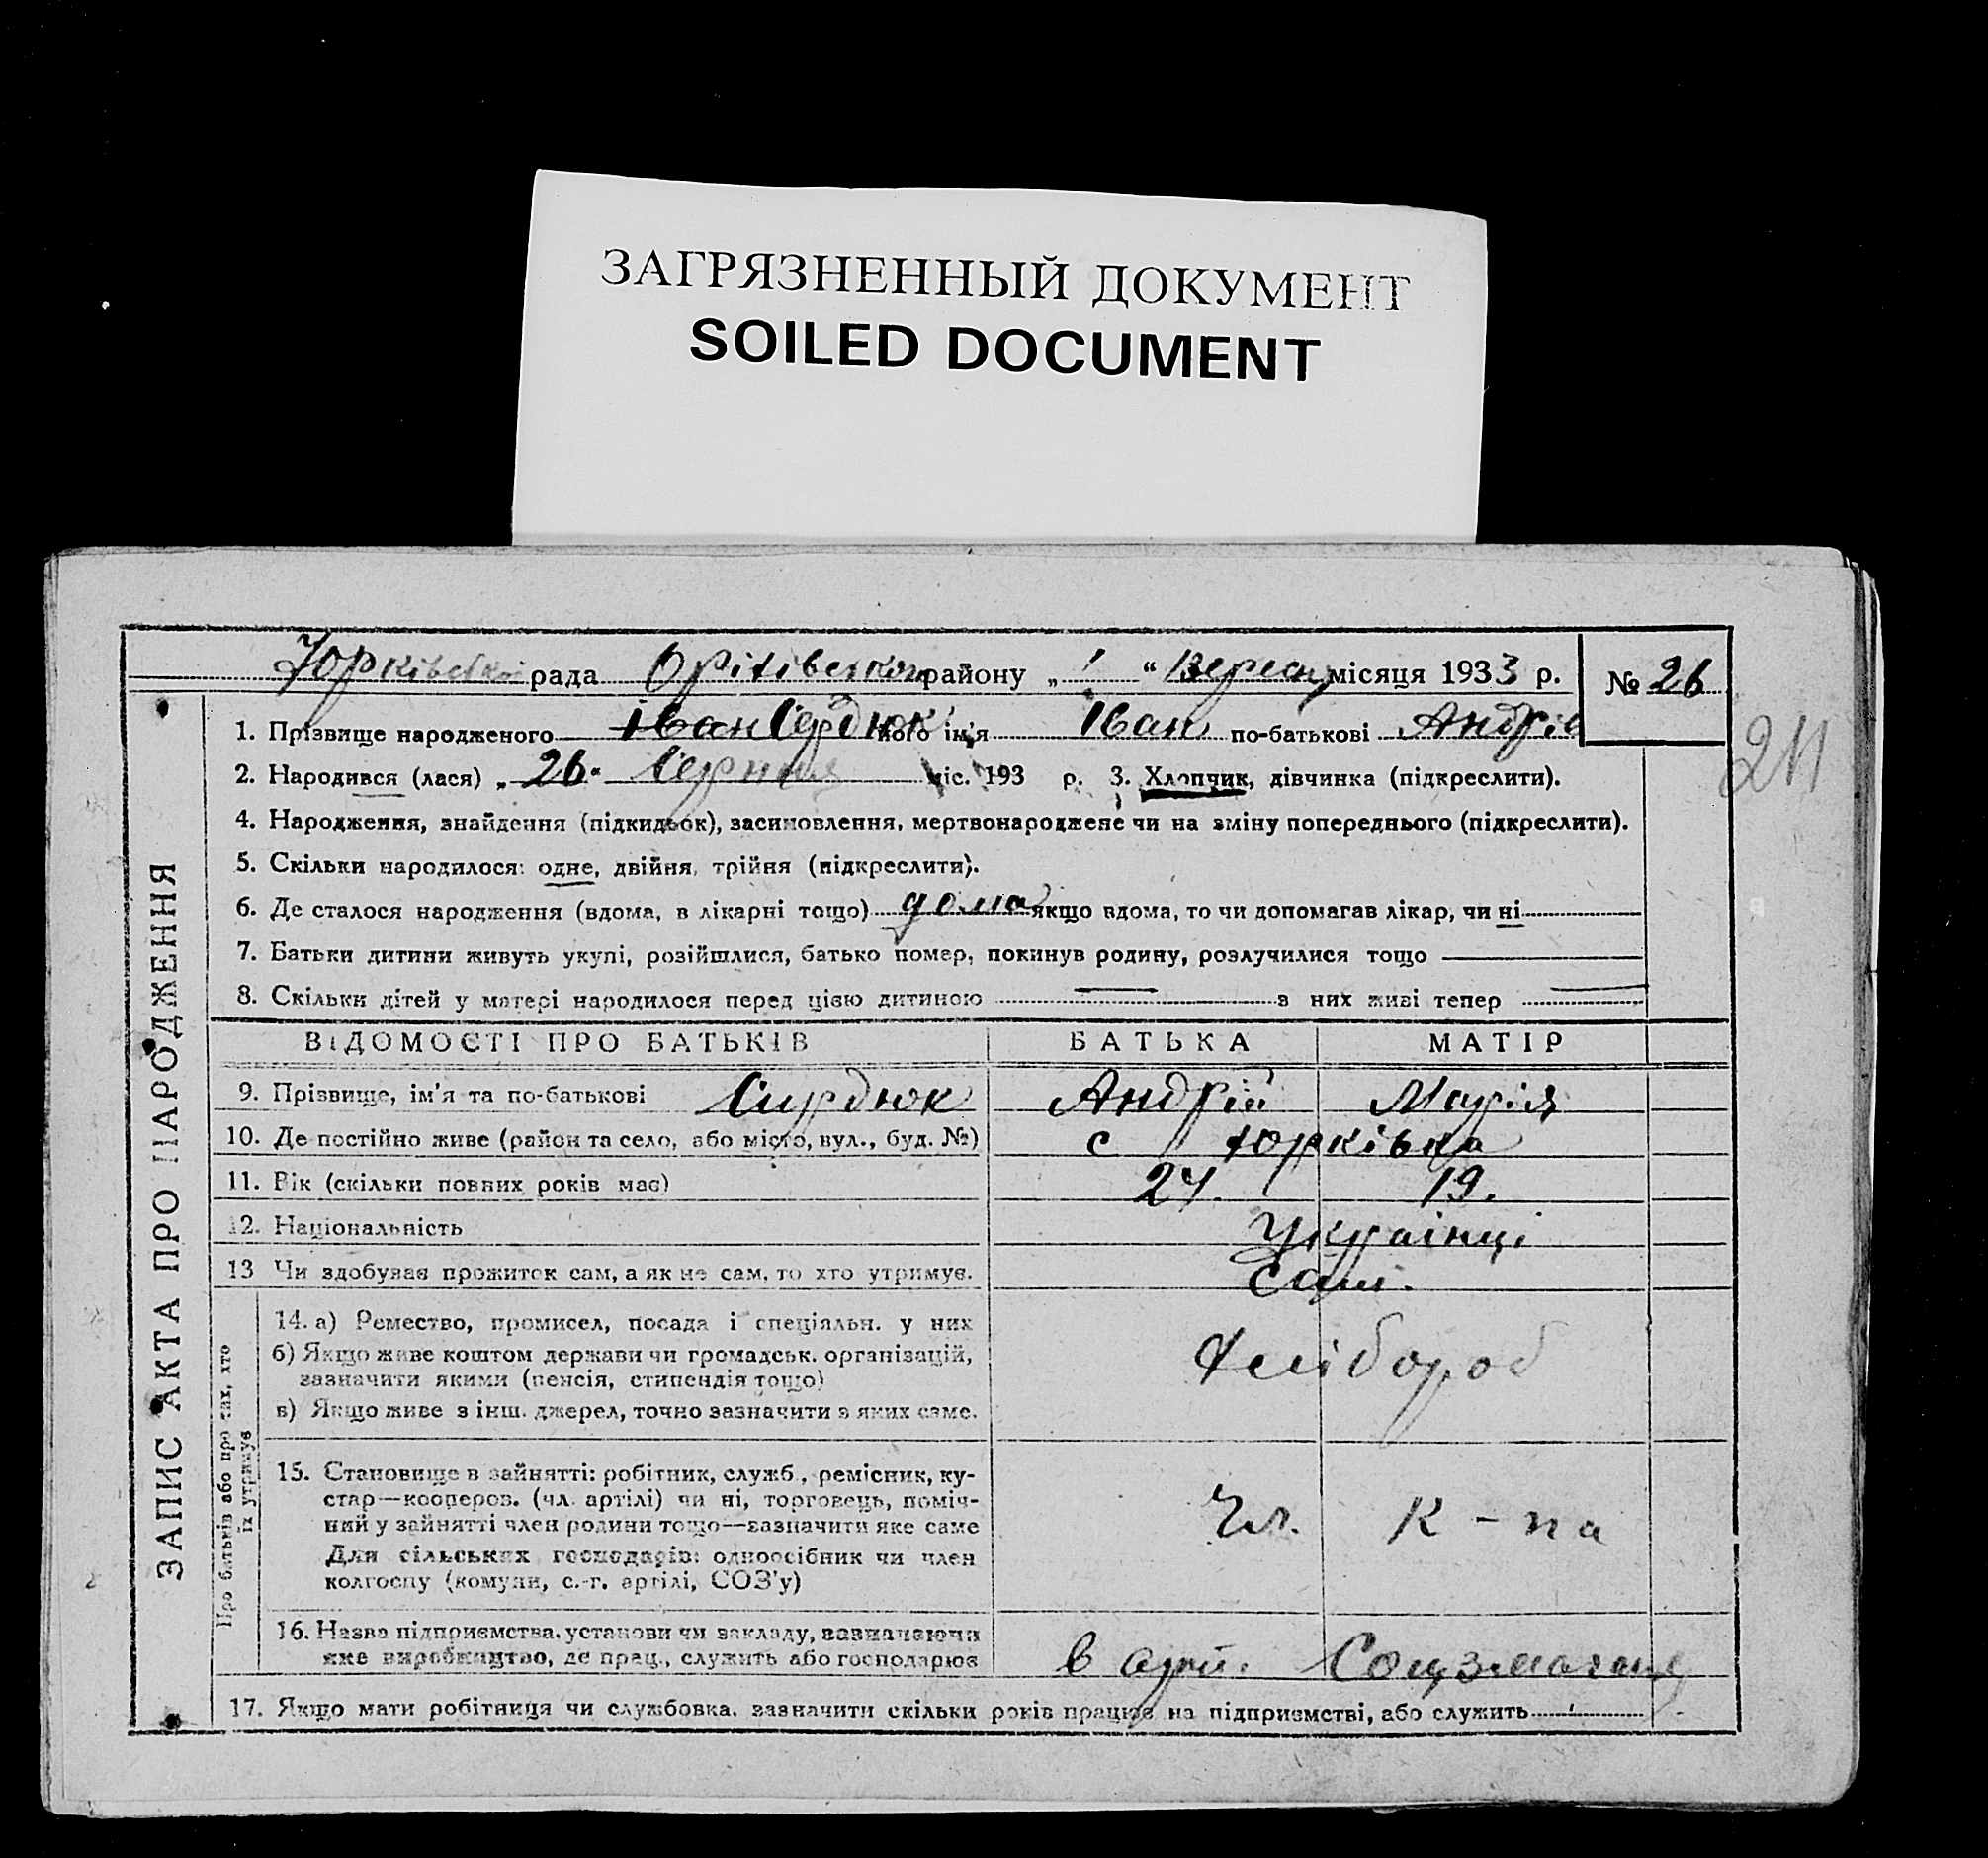 ЗАГРЯЗНЕННЫЙ ДОКУМЕНТ
SOILED DOCUMENT
Юрківської рада Оріхівського району „ 1 “ Вересня місяця 1933 р. № 26
211
1. Прізвище народженого Іван Сердюк його ім'я Іван по-батькові Андрів
2. Народився (лася) „ 26 “ Серпня міс. 193 р. 3. Хлопчик, дівчинка (підкреслити).
4. Народження, знайдення (підкидьок), засиновлення, мертвонароджене чи на зміну попереднього (підкреслити).
5. Скільки народилося: одне, двійня, трійня (підкреслити).
6. Де сталося народження (вдома, в лікарні тощо) дома якщо вдома, то чи допомагав лікар, чи ні
7. Батьки дитини живуть укупі, розійшлися, батько помер, покинув родину, розлучилися тощо —
8. Скільки дітей у матері народилося перед цією дитиною — з них живі тепер —
ЗАПИС АКТА ПРО НАРОДЖЕННЯ
ВІДОМОСТІ ПРО БАТЬКІВ БАТЬКА МАТІР
9. Прізвище, ім'я та по-батькові Сирдюк Андрій Марія
10. Де постійно живе (район та село, або місто, вул., буд. №) с Юрківка
11. Вік (скільки повних років має) 24. 19.
12. Національність Українці
13 Чи здобуває прожиток сам, а як не сам, то хто утримує. Самі.
Про батьків або про тих, хто
їх утримує
14. а) Ремество, промисел, посада і спеціяльн. у них
б) Якщо живе коштом держави чи громадськ. організацій,
зазначити якими (пенсія, стипендія тощо)
в) Якщо живе з інш. джерел, точно зазначити з яких саме.
Хлібороб
15. Становище в зайнятті: робітник, служб., ремісник, ку-
стар—коопером. (чл. артілі) чи ні, торговець, поміч-
ний у зайнятті член родини тощо—зазначити яке саме
Для сільських господарів: одноосібник чи член
колгоспу (комуни, с.-г. артілі, СОЗ'у)
Чл. к-па
16. Назва підприємства, установи чи закладу, зазначаючи
яке виробництво, де прац., служить або господарює
в арті. Соцзмагання
17. Якщо мати робітниця чи службовка, зазначити скільки років працює на підприємстві, або служить